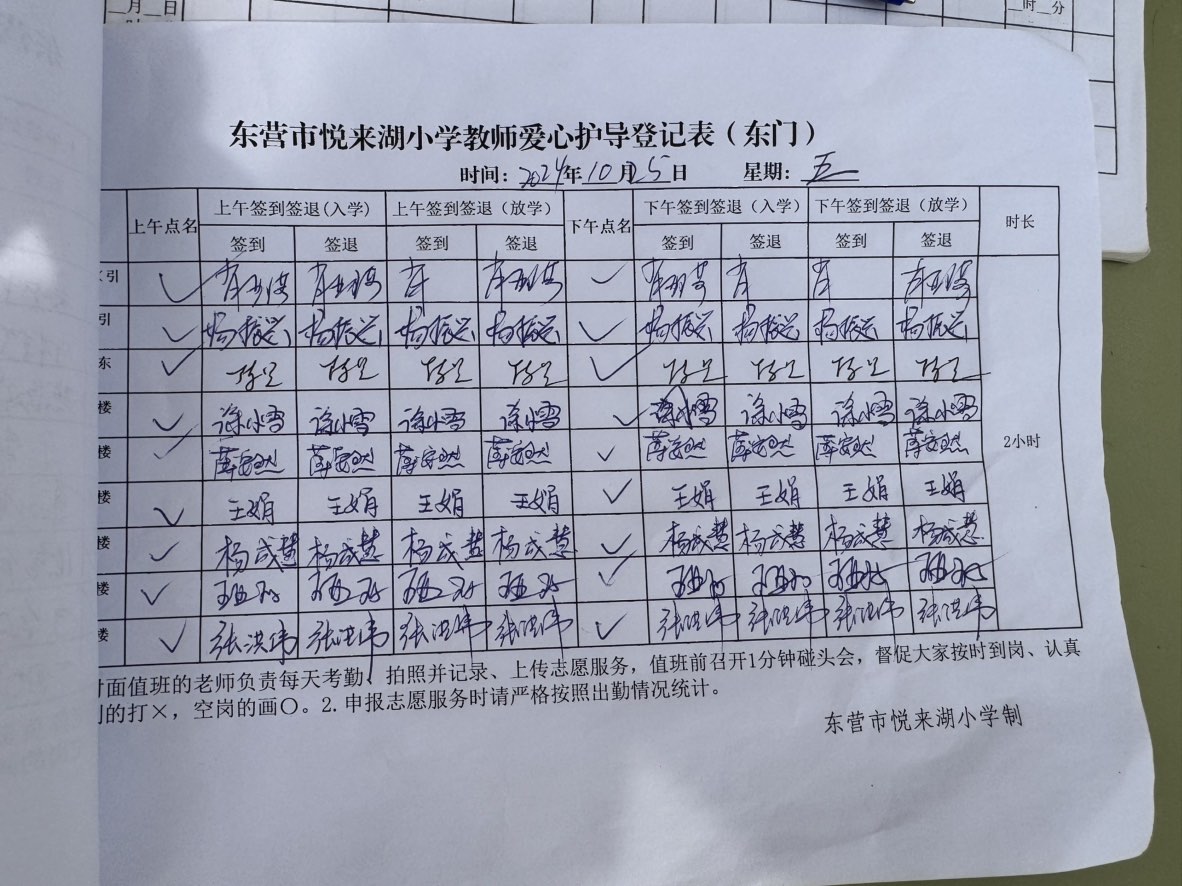 月 日
时 分
东营市悦来湖小学教师爱心护导登记表（东门）
时间：2024年10月25日 星期：五
上午点名 上午签到签退(入学) 上午签到签退（放学） 下午点名 下午签到签退（入学） 下午签到签退（放学） 时长
签到 签退 签到 签退 签到 签退 签到 签退
引 ✓ ✓
引 ✓ 杨振兴 杨振兴 杨振兴 杨振兴 ✓ 杨振兴 杨振兴 杨振兴 杨振兴
东 ✓ ✓
楼 ✓ 徐小雪 徐小雪 徐小雪 徐小雪 ✓ 徐小雪 徐小雪 徐小雪 徐小雪
楼 ✓ 薛安然 薛安然 薛安然 薛安然 ✓ 薛安然 薛安然 薛安然 薛安然 2小时
楼 ✓ 王娟 王娟 王娟 王娟 ✓ 王娟 王娟 王娟 王娟
楼 ✓ 杨成慧 杨成慧 杨成慧 杨成慧 ✓ 杨成慧 杨成慧 杨成慧 杨成慧
楼 ✓ ✓
楼 ✓ 张洪伟 张洪伟 张洪伟 张洪伟 ✓ 张洪伟 张洪伟 张洪伟 张洪伟
面值班的老师负责每天考勤、拍照并记录、上传志愿服务，值班前召开1分钟碰头会，督促大家按时到岗、认真
的打×，空岗的画○。2.申报志愿服务时请严格按照出勤情况统计。
东营市悦来湖小学制